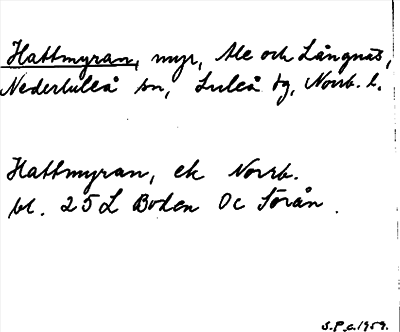 Hattmyran, myr, Ale och Långnäs,
Nederluleå sn, Luleå tg, Norrb. l.
Hattmyran, ek Norrb.
bl. 25 L Boden 0c Sörån.
S.P.c.1959.